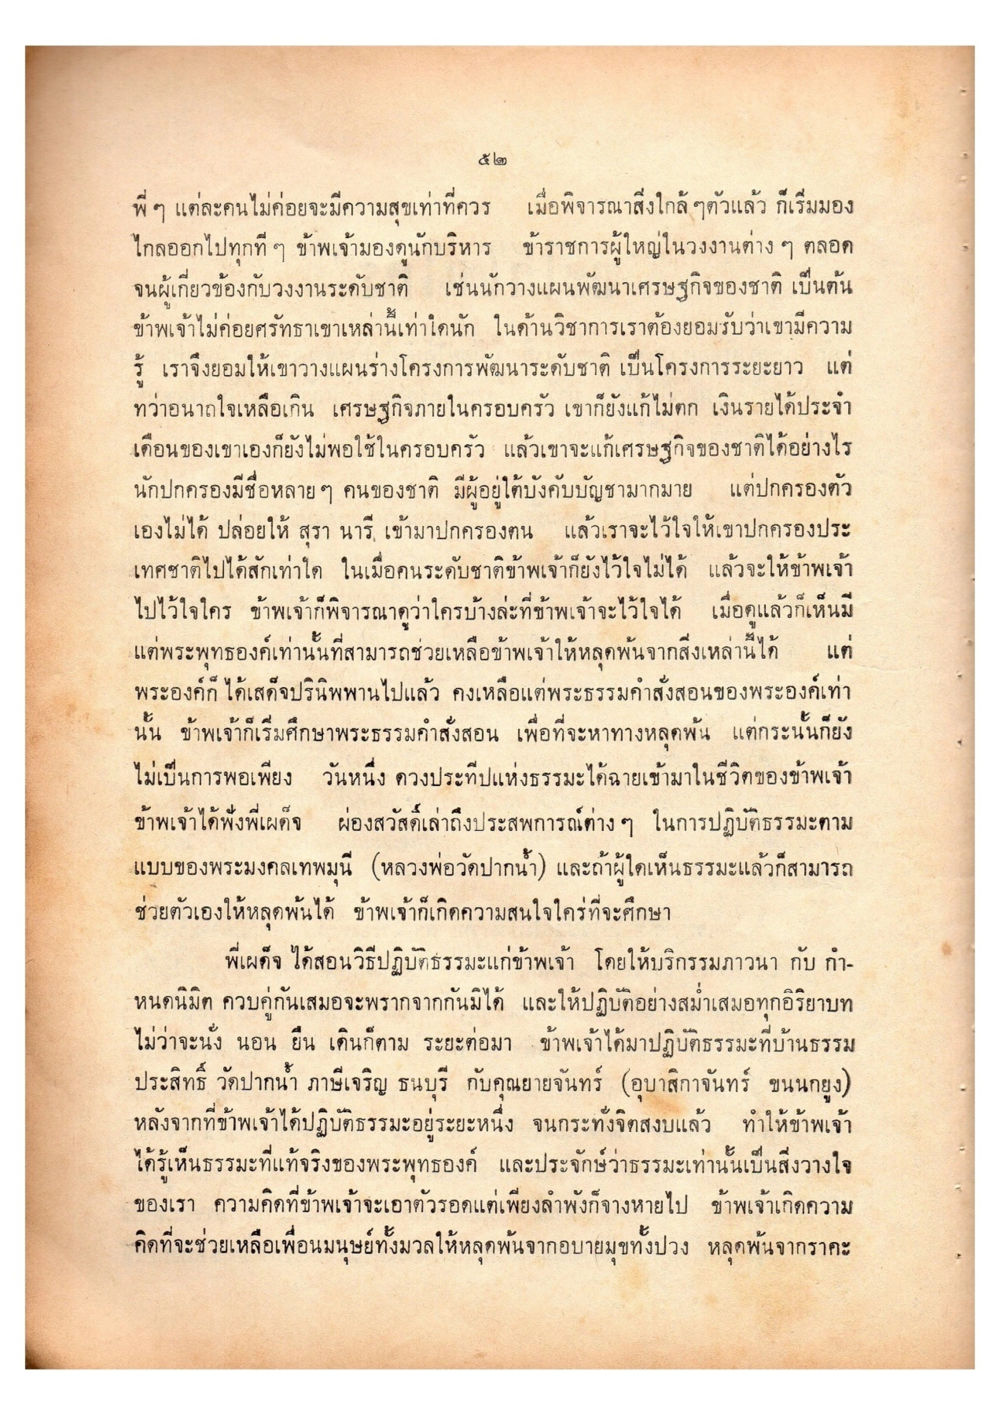 ๕๒
พี่ ๆ แต่ละคนไม่ค่อยจะมีความสุขเท่าที่ควร เมื่อพิจารณาสิ่งใกล้ ๆตัวแล้ว ก็เริ่มมอง
ไกลออกไปทุกที ๆ ข้าพเจ้ามองดูนักบริหาร ข้าราชการผู้ใหญ่ในวงงานต่าง ๆ ตลอด
จนผู้เกี่ยวข้องกับวงงานระดับชาติ เช่นนักวางแผนพัฒนาเศรษฐกิจของชาติ เป็นต้น
ข้าพเจ้าไม่ค่อยศรัทธาเขาเหล่านี้เท่าใดนัก ในด้านวิชาการเราต้องยอมรับว่าเขามีความ
รู้ เราจึงยอมให้เขาวางแผนร่างโครงการพัฒนาระดับชาติ เป็นโครงการระยะยาว แต่
ทว่าอนาถใจเหลือเกิน เศรษฐกิจภายในครอบครัว เขาก็ยังแก้ไม่ตก เงินรายได้ประจำ
เดือนของเขาเองก็ยังไม่พอใช้ในครอบครัว แล้วเขาจะแก้เศรษฐกิจของชาติได้อย่างไร
นักปกครองมีชื่อหลายๆ คนของชาติ มีผู้อยู่ใต้บังคับบัญชามากมาย แต่ปกครองตัว
เองไม่ได้ ปล่อยให้ สุรา นารี เข้ามาปกครองตน แล้วเราจะไว้ใจให้เขาปกครองประ
เทศชาติไปได้สักเท่าใด ในเมื่อคนระดับชาติข้าพเจ้าก็ยังไว้ใจไม่ได้ แล้วจะให้ข้าพเจ้า
ไปไว้ใจใคร ข้าพเจ้าก็พิจารณาดูว่าใครบ้างล่ะที่ข้าพเจ้าจะไว้ใจได้ เมื่อดูแล้วก็เห็นมี
แต่พระพุทธองค์เท่านั้นที่สามารถช่วยเหลือข้าพเจ้าให้หลุดพ้นจากสิ่งเหล่านี้ได้ แต่
พระองค์ก็ ได้เสด็จปรินิพพานไปแล้ว คงเหลือแต่พระธรรมคำสั่งสอนของพระองค์เท่า
นั้น ข้าพเจ้าก็เริ่มศึกษาพระธรรมคำสั่งสอน เพื่อที่จะหาทางหลุดพ้น แต่กระนั้นก็ยัง
ไม่เป็นการพอเพียง วันหนึ่ง ดวงประทีปแห่งธรรมะได้ฉายเข้ามาในชีวิตของข้าพเจ้า
ข้าพเจ้าได้ฟังพี่เผด็จ ผ่องสวัสดิ์เล่าถึงประสพการณ์ต่าง ๆ ในการปฏิบัติธรรมะตาม
แบบของพระมงคลเทพมุนี (หลวงพ่อวัดปากน้ำ) และถ้าผู้ใดเห็นธรรมะแล้วก็สามารถ
ช่วยตัวเองให้หลุดพ้นได้ ข้าพเจ้าก็เกิดความสนใจใคร่ที่จะศึกษา
พี่เผด็จ ได้สอนวิธีปฏิบัติธรรมะแก่ข้าพเจ้า โดยให้บริกรรมภาวนา กับ กำ-
หนดนิมิต ควบคู่กันเสมอจะพรากจากกันมิได้ และให้ปฏิบัติอย่างสม่ำเสมอทุกอิริยาบท
ไม่ว่าจะนั่ง นอน ยืน เดินก็ตาม ระยะต่อมา ข้าพเจ้าได้มาปฏิบัติธรรมะที่บ้านธรรม
ประสิทธิ์ วัดปากน้ำ ภาษีเจริญ ธนบุรี กับคุณยายจันทร์ (อุบาสิกาจันทร์ ขนนกยูง)
หลังจากที่ข้าพเจ้าได้ปฏิบัติธรรมะอยู่ระยะหนึ่ง จนกระทั่งจิตสงบแล้ว ทำให้ข้าพเจ้า
ได้รู้เห็นธรรมะที่แท้จริงของพระพุทธองค์ และประจักษ์ว่าธรรมะเท่านั้นเป็นสิ่งวางใจ
ของเรา ความคิดที่ข้าพเจ้าจะเอาตัวรอดแต่เพียงลำพังก็จางหายไป ข้าพเจ้าเกิดความ
คิดที่จะช่วยเหลือเพื่อนมนุษย์ทั้งมวลให้หลุดพ้นจากอบายมุขทั้งปวง หลุดพ้นจากราคะ